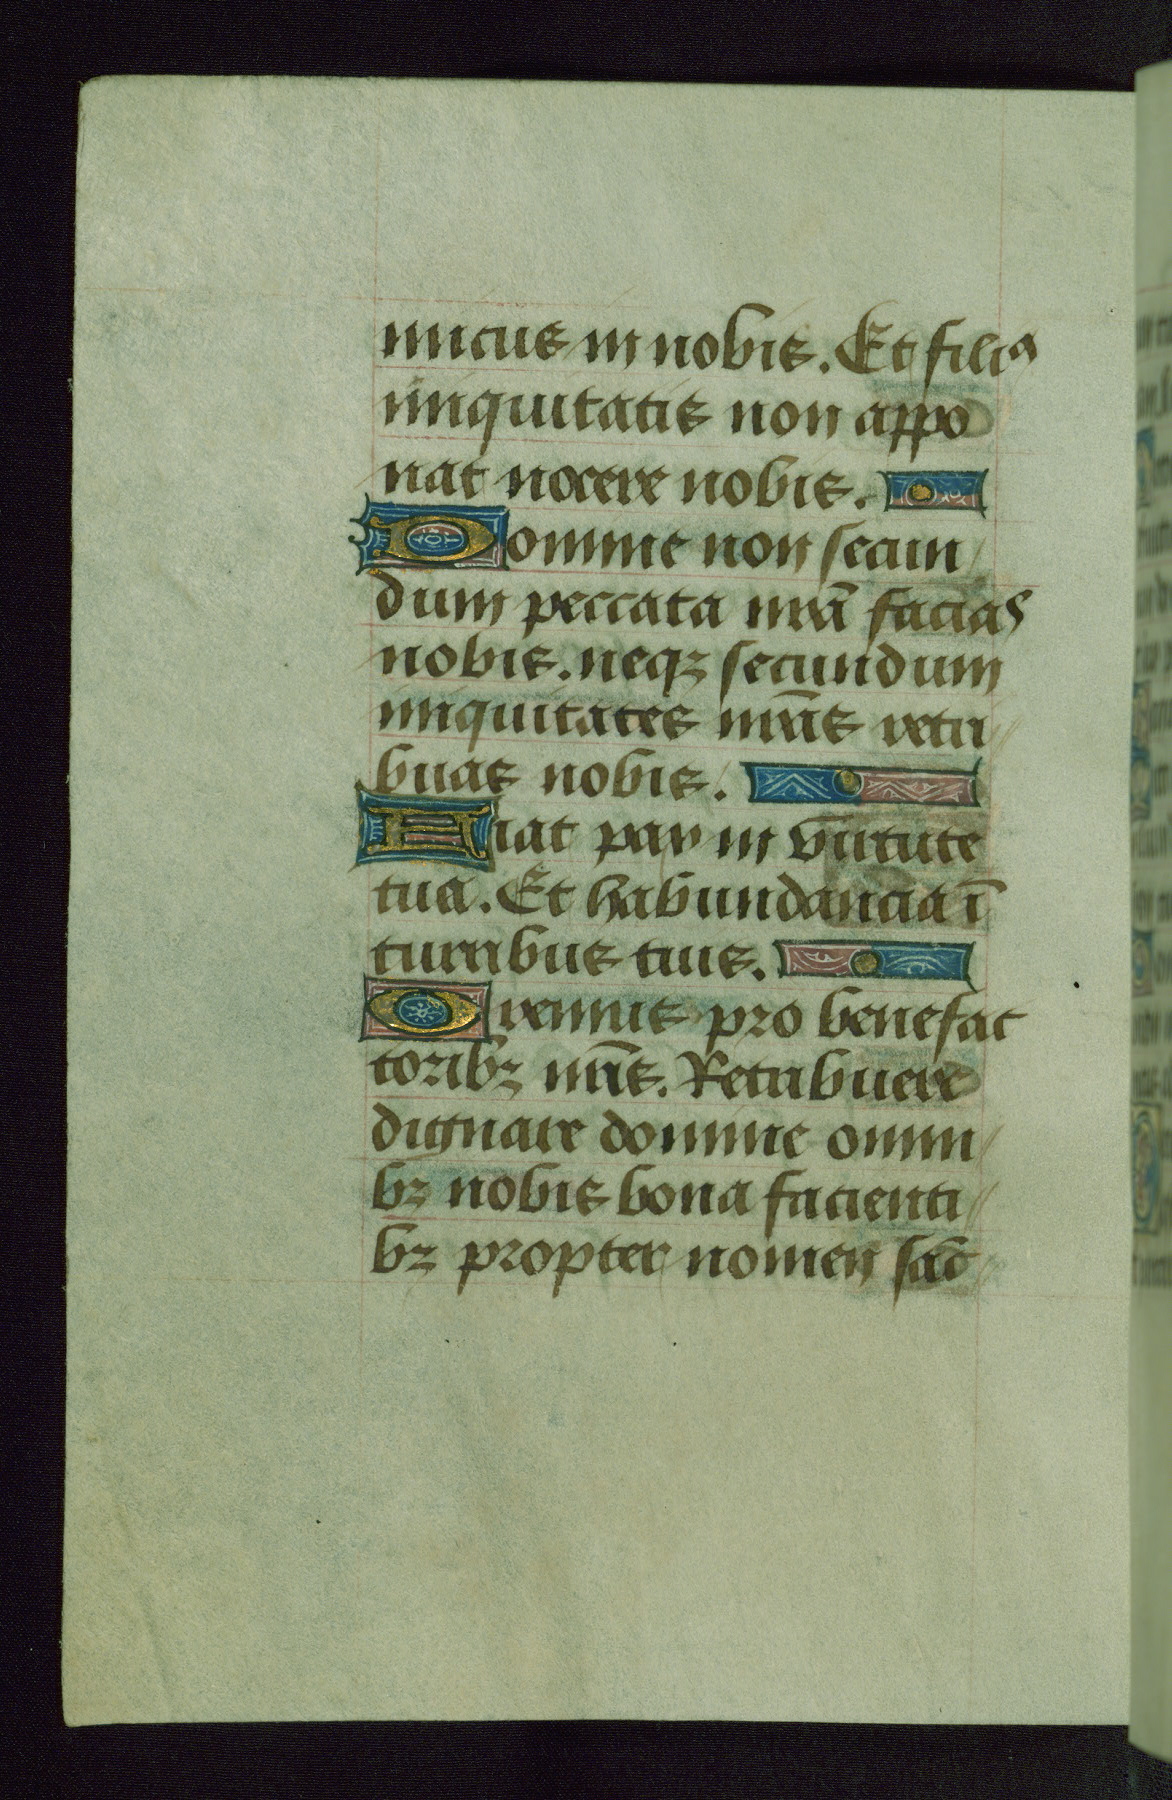 micus in nobis. Et filiꝰ
iniquitatis non appo
nat nocere nobis.
Domine non secun
dum peccata nr̄a facias
nobis. neqꝫ secundum
iniquitates nr̄as retri
buas nobis.
Fiat pax in virtute
tua. Et habundancia ī
turribus tuis.
Oremus pro benefac
toribꝫ nr̄is. Retribuere
dignare domine omni
bꝫ nobis bona facienti
bꝫ propter nomen sāc